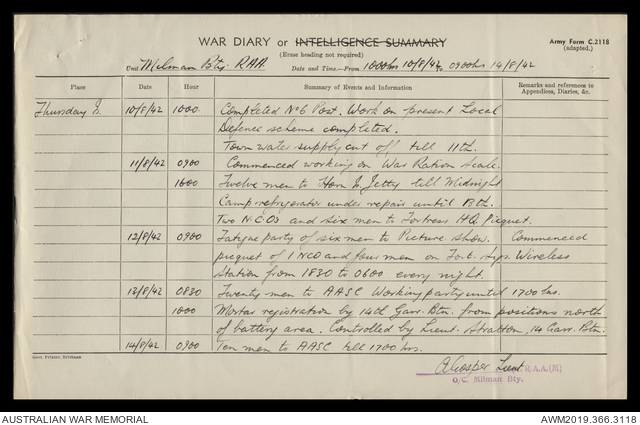 WAR DIARY or INTELLIGENCE SUMMARY
Army Form C.2118
(adapted.)
(Erase heading not required)
Unit Milman Bty. RAA. Date and Time.—From 1000hrs 10/8/42 to 0900hrs 14/8/42
Place Date Hour Summary of Events and Information Remarks and references to Appendices, Diaries, &c.
Thursday I. 10/8/42 1000 Completed No 6 Post. Work on present Local
Defence scheme completed.
Town water supply cut off till 11th.
11/8/42 0900 Commenced working on War Ration Scale.
1600 Twelve men to Horn I. Jetty till Midnight
Camp refrigerator under repair until 13th.
Two N.C.Os and six men to Fortress H.Q. Picquet.
12/8/42 0900 Fatigue party of six men to Picture Show. Commenced
picquet of 1 NCO and four men on Fort. Wireless
Station from 1830 to 0600 every night.
13/8/42 0830 Twenty men to AASC Working party until 1700 hrs.
1000 Mortar registration by 14th Garr. Btn. from positions north
of battery area. Controlled by Lieut. Stratton, 14 Garr. Btn.
14/8/42 0900 Ten men to AASC till 1700 hrs.
Lieut R.A.A.(M)
O/C. Milman Bty.
Govt. Printer, Brisbane
AUSTRALIAN WAR MEMORIAL
AWM2019.366.3118